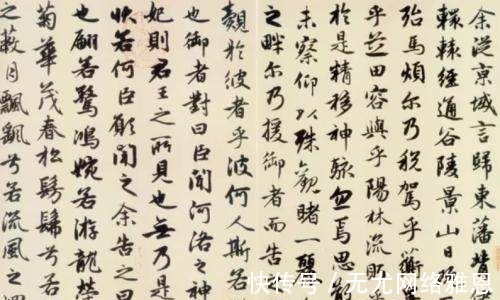 余從京域言歸東藩
轘轅經通谷陵景山日
殆馬煩尔乃稅駕乎蘅
乎芝田容與乎陽林流眄
於是精移神駭忽焉思
未察仰以殊觀睹一麗
之畔尔乃援御者而告
覿於彼者乎彼何人斯若
也御者對曰臣聞河洛之神
妃則君王之所見也無乃是
狀若何臣願聞之余告之曰
也翩若驚鴻婉若游龍榮
菊華茂春松髣髴兮若
之蔽月飄颻兮若流風之
快传号 / 无尤网络雅恩